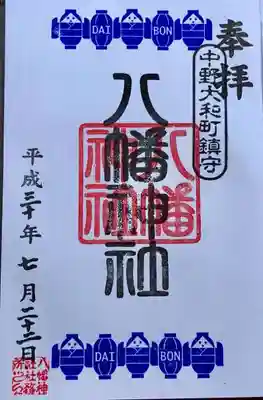 DAI BON
奉拝
中野大和町鎮守
八幡神社
八幡神社
平成三十年七月二十二日
八幡神社社務所之印
DAI BON